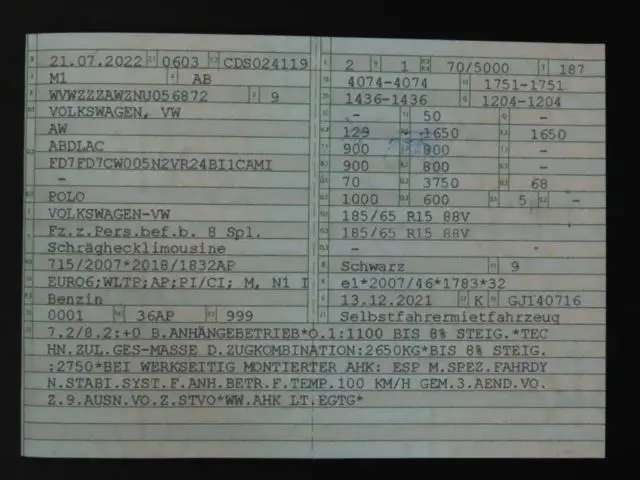 21.07.2022 0603 CDS024119
M1 AB
WVWZZZAWZNU056872 9
VOLKSWAGEN, VW
AW
ABDLAC
FD7FD7CW005N2VR24BI1CAMI
–
POLO
VOLKSWAGEN-VW
Fz.z.Pers.bef.b. 8 Spl.
Schräghecklimousine
715/2007*2018/1832AP
EURO6;WLTP;AP;PI/CI; M, N1 I
Benzin
0001 36AP 999
2 1 70/5000 187
4074-4074 1751-1751
1436-1436 1204-1204
– 50 –
129 1650 1650
900 800 –
900 800 –
70 3750 68
1000 600 5 –
185/65 R15 88V
185/65 R15 88V
– –
Schwarz 9
e1*2007/46*1783*32
13.12.2021 K GJ140716
Selbstfahrermietfahrzeug
7.2/8.2:+0 B.ANHÄNGEBETRIEB*O.1:1100 BIS 8% STEIG.*TEC
HN.ZUL.GES-MASSE D.ZUGKOMBINATION:2650KG*BIS 8% STEIG.
:2750*BEI WERKSEITIG MONTIERTER AHK: ESP M.SPEZ.FAHRDY
N.STABI.SYST.F.ANH.BETR.F.TEMP.100 KM/H GEM.3.AEND.VO.
Z.9.AUSN.VO.Z.STVO*WW.AHK LT.EGTG*